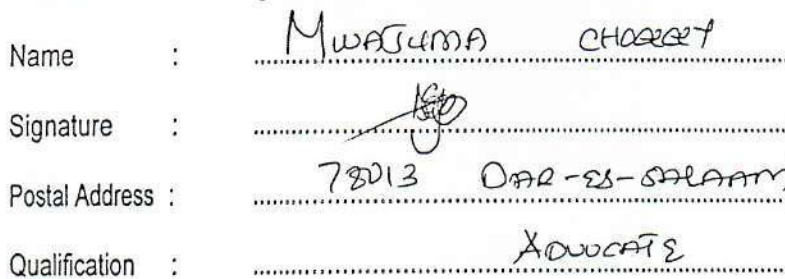 Name : MWAJUMA
Signature :
Postal Address : 78013 DAR-ES-SALAAM
Qualification : ADVOCATE